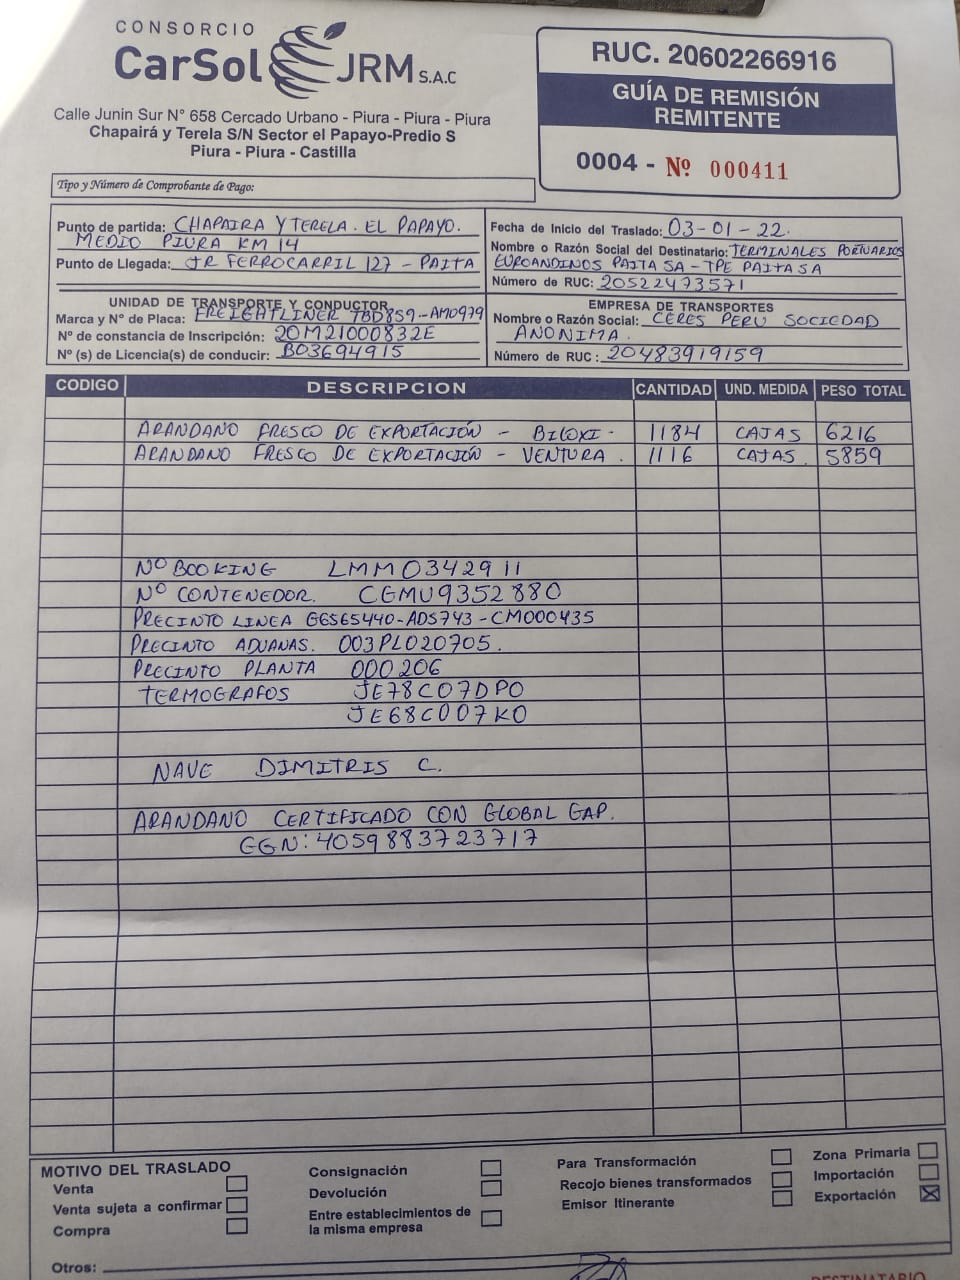 CONSORCIO
CarSol JRM S.A.C
Calle Junin Sur N° 658 Cercado Urbano - Piura - Piura - Piura
Chapairá y Terela S/N Sector el Papayo-Predio S
Piura - Piura - Castilla
RUC. 20602266916
GUÍA DE REMISIÓN
REMITENTE
0004 - Nº 000411
Tipo y Número de Comprobante de Pago:
Punto de partida: CHAPAIRA Y TERELA. EL PAPAYO.
MEDIO PIURA KM 14
Punto de Llegada: JR FERROCARRIL 127 - PAITA
Fecha de Inicio del Traslado: 03-01-22.
Nombre o Razón Social del Destinatario: TERMINALES PORTUARIOS
EUROANDINOS PAITA SA - TPE PAITA SA
Número de RUC: 20522473571
UNIDAD DE TRANSPORTE Y CONDUCTOR
Marca y N° de Placa: FREIGHTLINER TBD859-AMO979
N° de constancia de Inscripción: 20M21000832E
N° (s) de Licencia(s) de conducir: B03694915
EMPRESA DE TRANSPORTES
Nombre o Razón Social: CERES PERU SOCIEDAD
ANONIMA.
Número de RUC: 20483919159
CODIGO DESCRIPCION CANTIDAD UND. MEDIDA PESO TOTAL
ARANDANO FRESCO DE EXPORTACIÓN - BILOXI - 1184 CAJAS 6216
ARANDANO FRESCO DE EXPORTACIÓN - VENTURA. 1116 CAJAS. 5859
Nº BOOKING LMM0342911
Nº CONTENEDOR. CGMU9352880
PRECINTO LINEA G6565440-ADS743-CM000435
PRECINTO ADUANAS. 003PL020705.
PRECINTO PLANTA 000206
TERMOGRAFOS JE78C07DP0
JE68C007K0
NAVE DIMITRIS C.
ARANDANO CERTIFICADO CON GLOBAL GAP.
GGN: 4059883723717
MOTIVO DEL TRASLADO
Venta
Venta sujeta a confirmar
Compra
Consignación
Devolución
Entre establecimientos de
la misma empresa
Para Transformación
Recojo bienes transformados
Emisor Itinerante
Zona Primaria
Importación
Exportación X
Otros:
DESTINATARIO